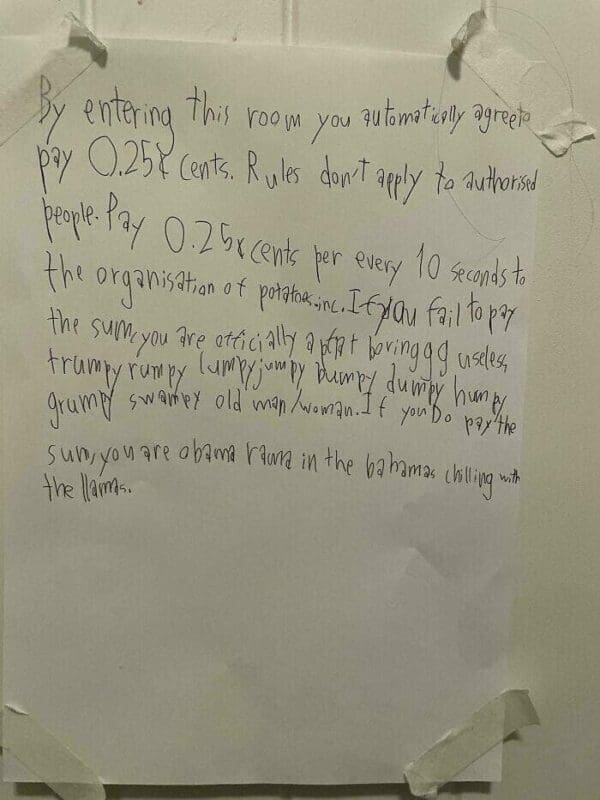 By entering this room you automatically agree to
pay 0.25¢ cents. Rules don't apply to authorised
people. Pay 0.25¢ cents per every 10 seconds to
the organisation of potatoes.inc. If you fail to pay
the sum, you are officially a boringgg useless,
trumpy rumpy lumpy jumpy bumpy dumpy humpy
grumpy swampey old man/woman. If you Do pay the
sum, you are obama rama in the bahamas chilling with
the llamas.